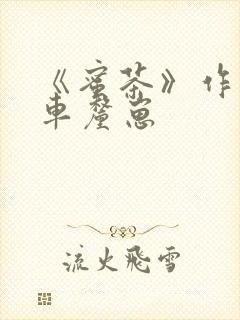 《蜜茶》作
車釐崽
流火飛雪